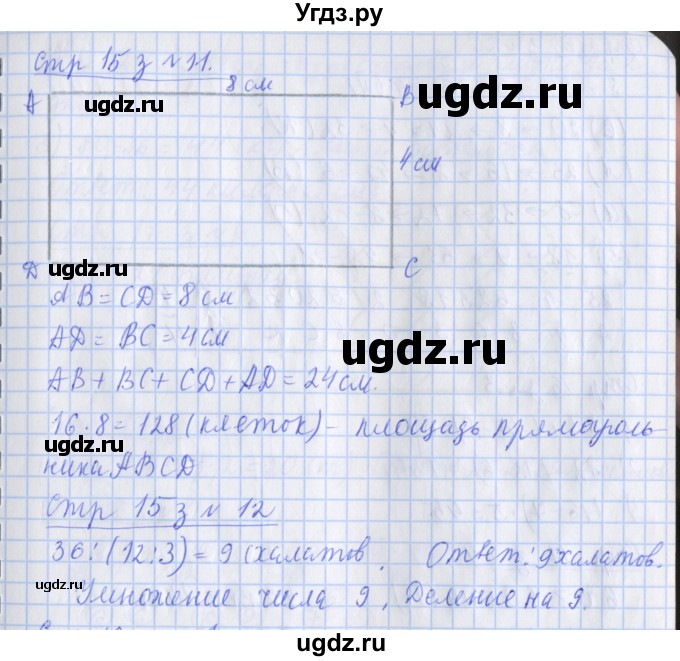 Угдз.ру
Стр 15 з № 11.
8 см
А ugdz.ru ugdz.ru В
4 см
Д ugdz.ru С
АВ = CD = 8 см
AD = ВС = 4 см
ugdz.ru
АВ + ВС + CD + AD = 24 см.
16 · 8 = 128 (клеток) - площадь прямоуголь-
ugdz.ru
ника ABCD
Стр 15 з № 12
36 : (12 : 3) = 9 (халатов. Ответ: 9 халатов.
ugdz.ru
Умножение числа 9, Деление на 9.
ugdz.ru